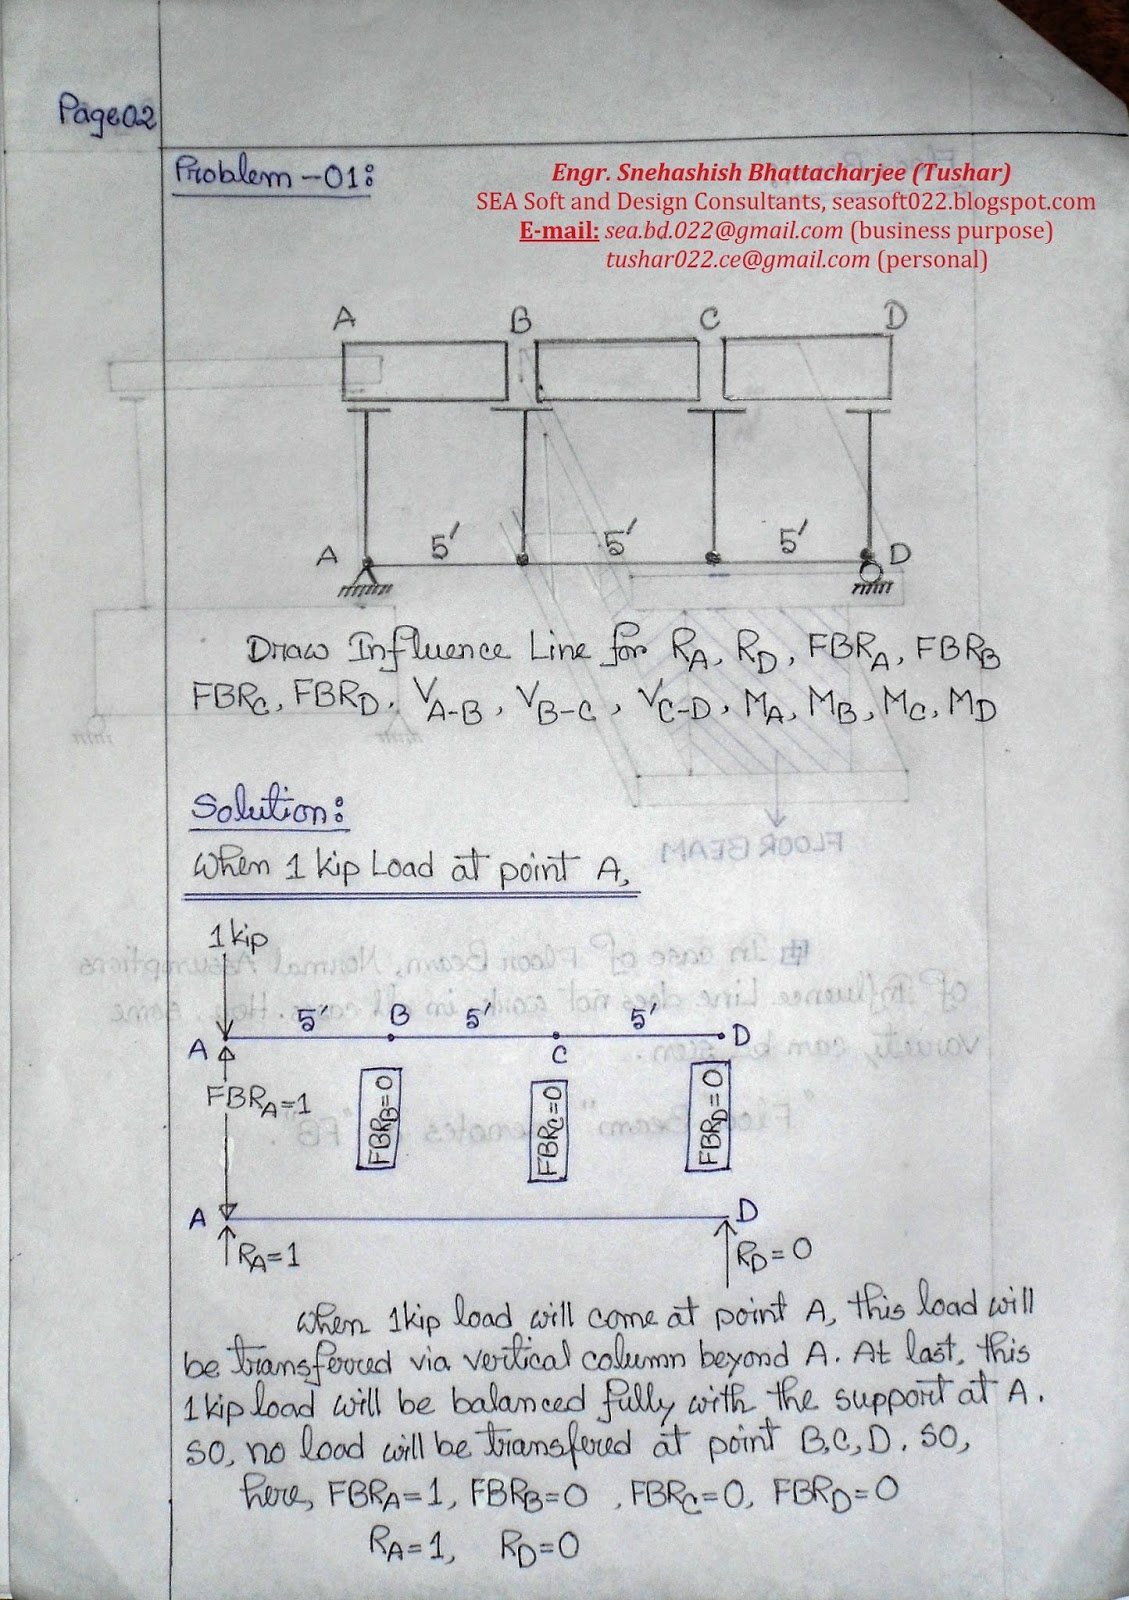 Page 02
Problem-01:
Engr. Snehashish Bhattacharjee (Tushar)
SEA Soft and Design Consultants, seasoft022.blogspot.com
E-mail: sea.bd.022@gmail.com (business purpose)
tushar022.ce@gmail.com (personal)
A B C D
5' 5' 5'
A D
Draw Influence Line for RA, RD, FBRA, FBRB
FBRC, FBRD, VA-B, VB-C, VC-D, MA, MB, MC, MD
Solution:
When 1 kip Load at point A,
1 kip
5' B 5' 5'
A C D
FBRA=1
FBRB=0
FBRC=0
FBRD=0
A D
RA=1 RD=0
When 1kip load will come at point A, this load will
be transferred via vertical column beyond A. At last, this
1kip load will be balanced fully with the support at A.
So, no load will be transfered at point B,C,D. So,
here, FBRA=1, FBRB=0, FBRC=0, FBRD=0
RA=1, RD=0
FLOOR BEAM
In case of Floor Beam, Normal Assumptions
of Influence Line does not work in all cases. Here, some
"Floor Beam" denotes "FB".